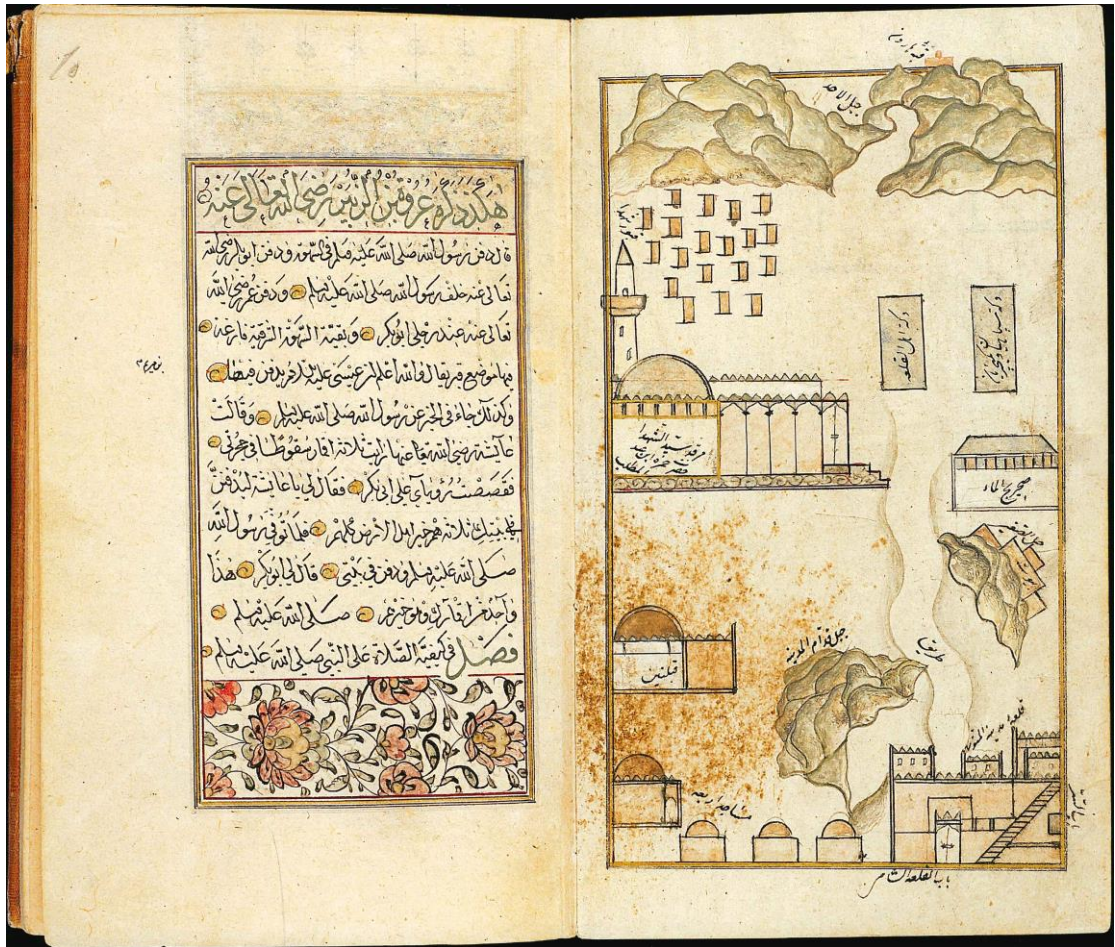 هكذا ذكره عروة بن الزبير رضي الله تعالى عنه
قال دفن رسول الله صلى الله عليه وسلم في السهوة ودفن ابو بكر رضي الله
تعالى عنه خلف رسول الله صلى الله عليه وسلم ودفن عمر رضي الله
تعالى عنه عند رجلي ابو بكر وبقية السهوة الشرقية فارغة
فيها موضع قبر يقال والله اعلم ان عيسى عليه السلام يدفن فيها
وكذلك جاء في الخبر عن رسول الله صلى الله عليه وسلم وقالت
عايشة رضي الله تعا عنها رايت ثلاثة اقمار سقوطا في حجرتي
فقصصت رؤياي على ابى بكر فقال لي يا عايشة ليدفنن
في بيتك ثلاثة هم خير اهل الارض كلهم فلما توفي رسول الله
صلى الله عليه وسلم ودفن في بيتي قال لي ابو بكر هذا
واحد من اقمارك وهو خيرهم صلى الله عليه وسلم
فصل في كيفية الصلاة على النبي صلى الله عليه وسلم
قبة هارون
جبل الاحد
مرقد سيد الشهدا
حضرة حمزة ابن عبد
المطلب
صهريج الماء
جبل
طريق
جبل قدام المدينة
قبلتين
مساجد اربعة
قلعة مدينة المنورة
باب القلعة الشامي